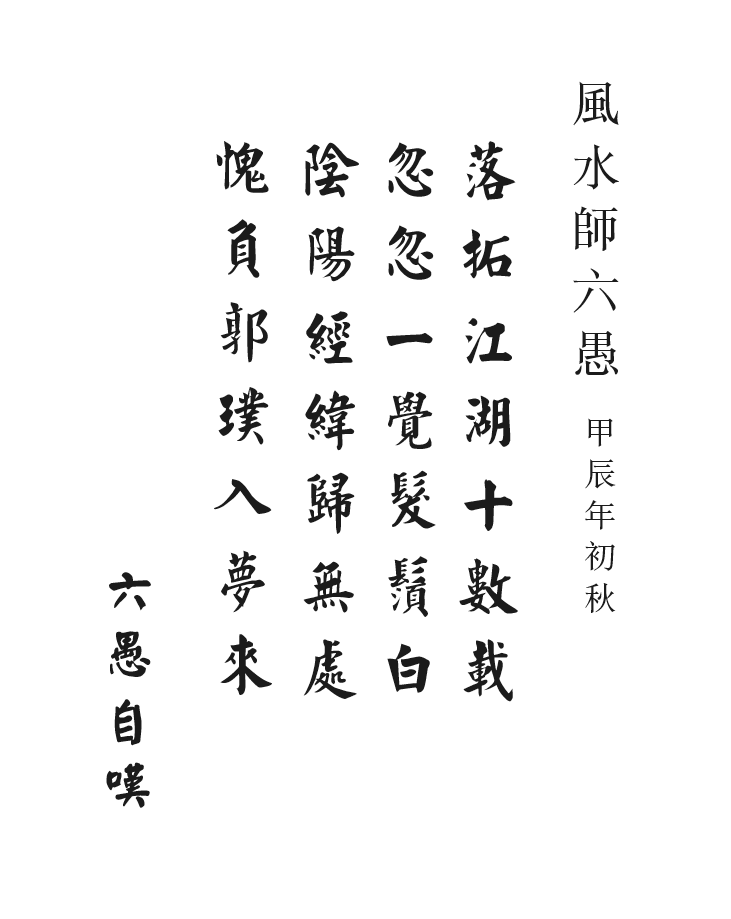 風水師六愚 甲辰年初秋
落拓江湖十數載
忽忽一覺髮鬚白
陰陽經緯歸無處
愧負郭璞入夢來
六愚自嘆